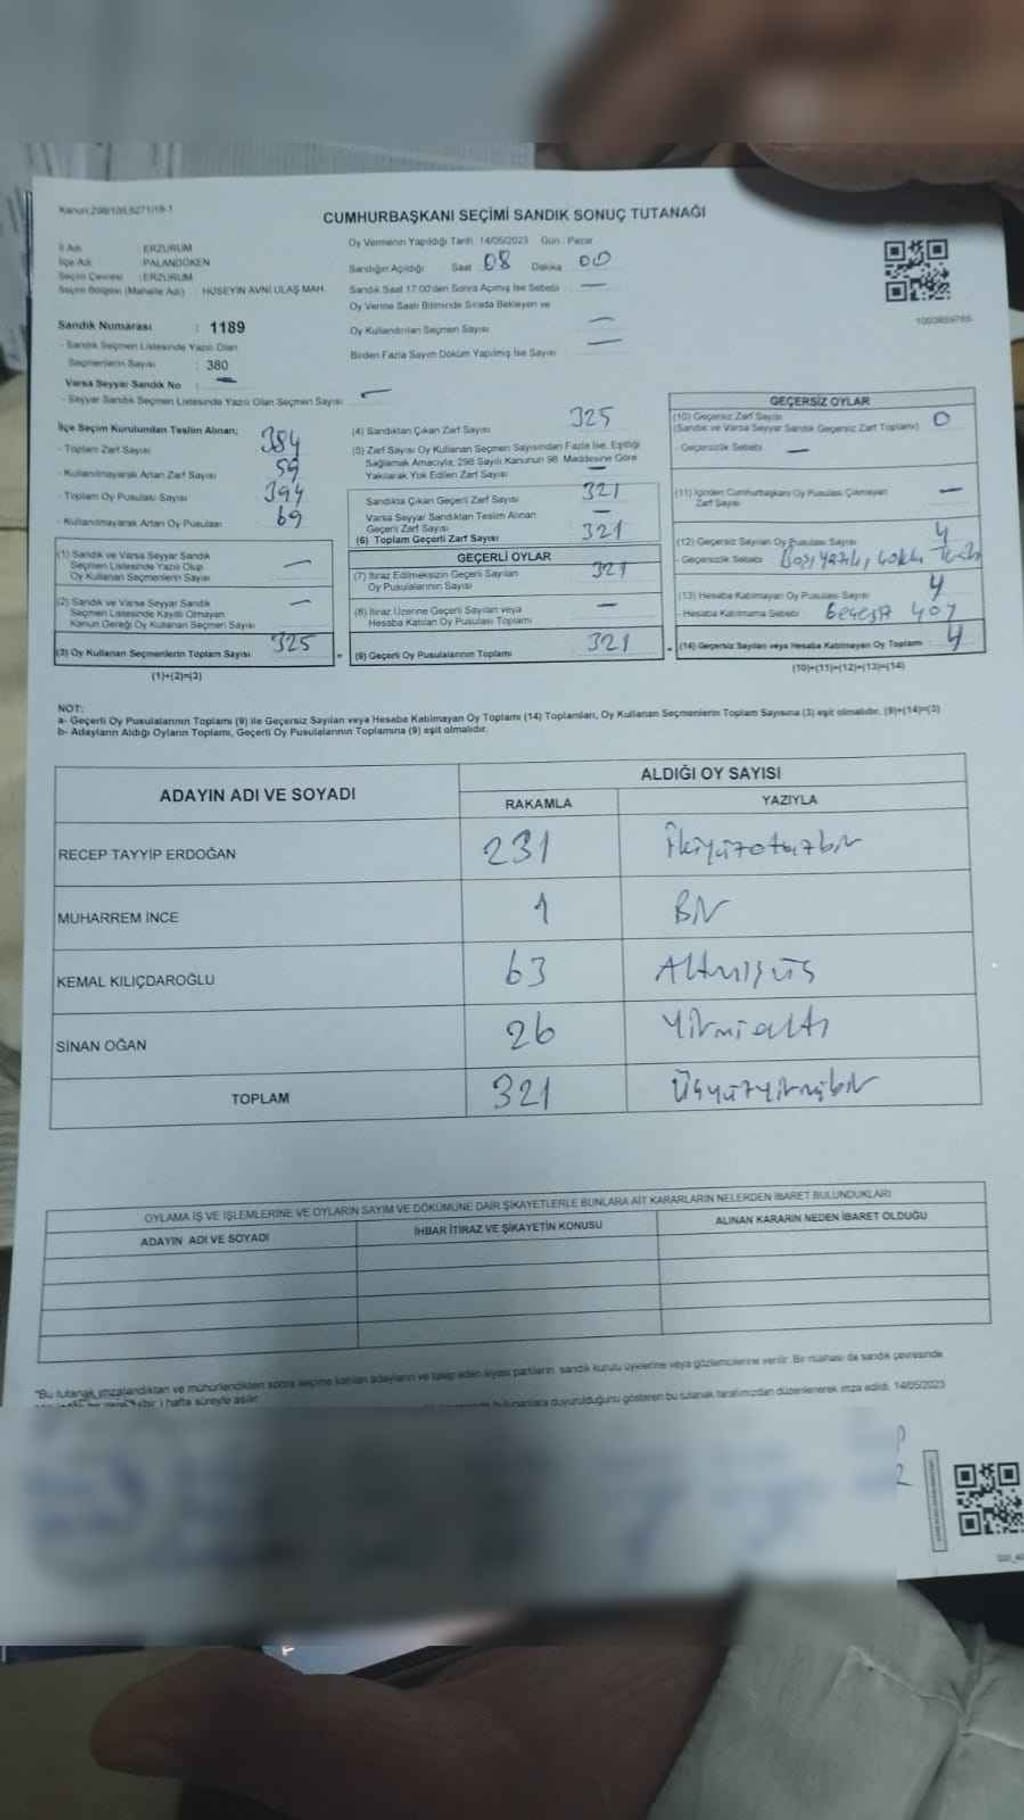 CUMHURBAŞKANI SEÇİMİ SANDIK SONUÇ TUTANAĞI
İl Adı : ERZURUM
İlçe Adı : PALANDÖKEN
Seçim Çevresi : ERZURUM
Seçim Bölgesi (Mahalle Adı) : HÜSEYİN AVNİ ULAŞ MAH.
Oy Vermenin Yapıldığı Tarih: 14/05/2023 Gün : Pazar
Sandığın Açıldığı Saat 08 Dakika 00
Sandık Saat 17:00'den Sonra Açılmış İse Sebebi —
Oy Verme Saati Bitiminde Sırada Bekleyen ve
Oy Kullandırılan Seçmen Sayısı —
Birden Fazla Sayım Döküm Yapılmış İse Sayısı —
Sandık Numarası : 1189
- Sandık Seçmen Listesinde Yazılı Olan
Seçmenlerin Sayısı : 380
Varsa Seyyar Sandık No : —
- Seyyar Sandık Seçmen Listesinde Yazılı Olan Seçmen Sayısı —
İlçe Seçim Kurulundan Teslim Alınan;
- Toplam Zarf Sayısı 384
- Kullanılmayarak Artan Zarf Sayısı 59
- Toplam Oy Pusulası Sayısı 394
- Kullanılmayarak Artan Oy Pusulası 69
(1) Sandık ve Varsa Seyyar Sandık
Seçmen Listesinde Yazılı Olup
Oy Kullanan Seçmenlerin Sayısı —
(2) Sandık ve Varsa Seyyar Sandık
Seçmen Listesinde Kayıtlı Olmayan
Kanun Gereği Oy Kullanan Seçmen Sayısı —
(3) Oy Kullanan Seçmenlerin Toplam Sayısı 325
(1)+(2)=(3)
(4) Sandıktan Çıkan Zarf Sayısı 325
(5) Zarf Sayısı Oy Kullanan Seçmen Sayısından Fazla İse, Eşitliği
Sağlamak Amacıyla, 298 Sayılı Kanunun 98. Maddesine Göre
Yakılarak Yok Edilen Zarf Sayısı —
Sandıkta Çıkan Geçerli Zarf Sayısı 321
Varsa Seyyar Sandıktan Teslim Alınan
Geçerli Zarf Sayısı —
(6) Toplam Geçerli Zarf Sayısı 321
GEÇERLİ OYLAR
(7) İtiraz Edilmeksizin Geçerli Sayılan
Oy Pusulalarının Sayısı 321
(8) İtiraz Üzerine Geçerli Sayılan veya
Hesaba Katılan Oy Pusulası Toplamı —
(9) Geçerli Oy Pusulalarının Toplamı 321
GEÇERSİZ OYLAR
(10) Geçersiz Zarf Sayısı
(Sandık ve Varsa Seyyar Sandık Geçersiz Zarf Toplamı) 0
- Geçersizlik Sebebi —
(11) İçinden Cumhurbaşkanı Oy Pusulası Çıkmayan
Zarf Sayısı —
(12) Geçersiz Sayılan Oy Pusulası Sayısı 4
- Geçersizlik Sebebi
(13) Hesaba Katılmayan Oy Pusulası Sayısı 4
- Hesaba Katılmama Sebebi
(14) Geçersiz Sayılan veya Hesaba Katılmayan Oy Toplamı 4
(10)+(11)+(12)+(13)=(14)
NOT:
a- Geçerli Oy Pusulalarının Toplamı (9) ile Geçersiz Sayılan veya Hesaba Katılmayan Oy Toplamı (14) Toplamları, Oy Kullanan Seçmenlerin Toplam Sayısına (3) eşit olmalıdır. (9)+(14)=(3)
b- Adayların Aldığı Oyların Toplamı, Geçerli Oy Pusulalarının Toplamına (9) eşit olmalıdır.
ADAYIN ADI VE SOYADI ALDIĞI OY SAYISI
RAKAMLA YAZIYLA
RECEP TAYYİP ERDOĞAN 231 İkiyüzotuzbir
MUHARREM İNCE 1 Bir
KEMAL KILIÇDAROĞLU 63 Altmışüç
SİNAN OĞAN 26 Yirmialtı
TOPLAM 321 Üçyüzyirmibir
OYLAMA İŞ VE İŞLEMLERİNE VE OYLARIN SAYIM VE DÖKÜMÜNE DAİR ŞİKAYETLERLE BUNLARA AİT KARARLARIN NELERDEN İBARET BULUNDUKLARI
ADAYIN ADI VE SOYADI İHBAR İTİRAZ VE ŞİKAYETİN KONUSU ALINAN KARARIN NEDEN İBARET OLDUĞU
"Bu tutanak imzalandıktan ve mühürlendikten sonra seçime katılan adayların ve talep eden siyasi partilerin, sandık kurulu üyelerine veya gözlemcilerine verilir. Bir nüshası da sandık çevresinde
duyurulduğunu gösteren bu tutanak tarafımızdan düzenlenerek imza edildi. 14/05/2023